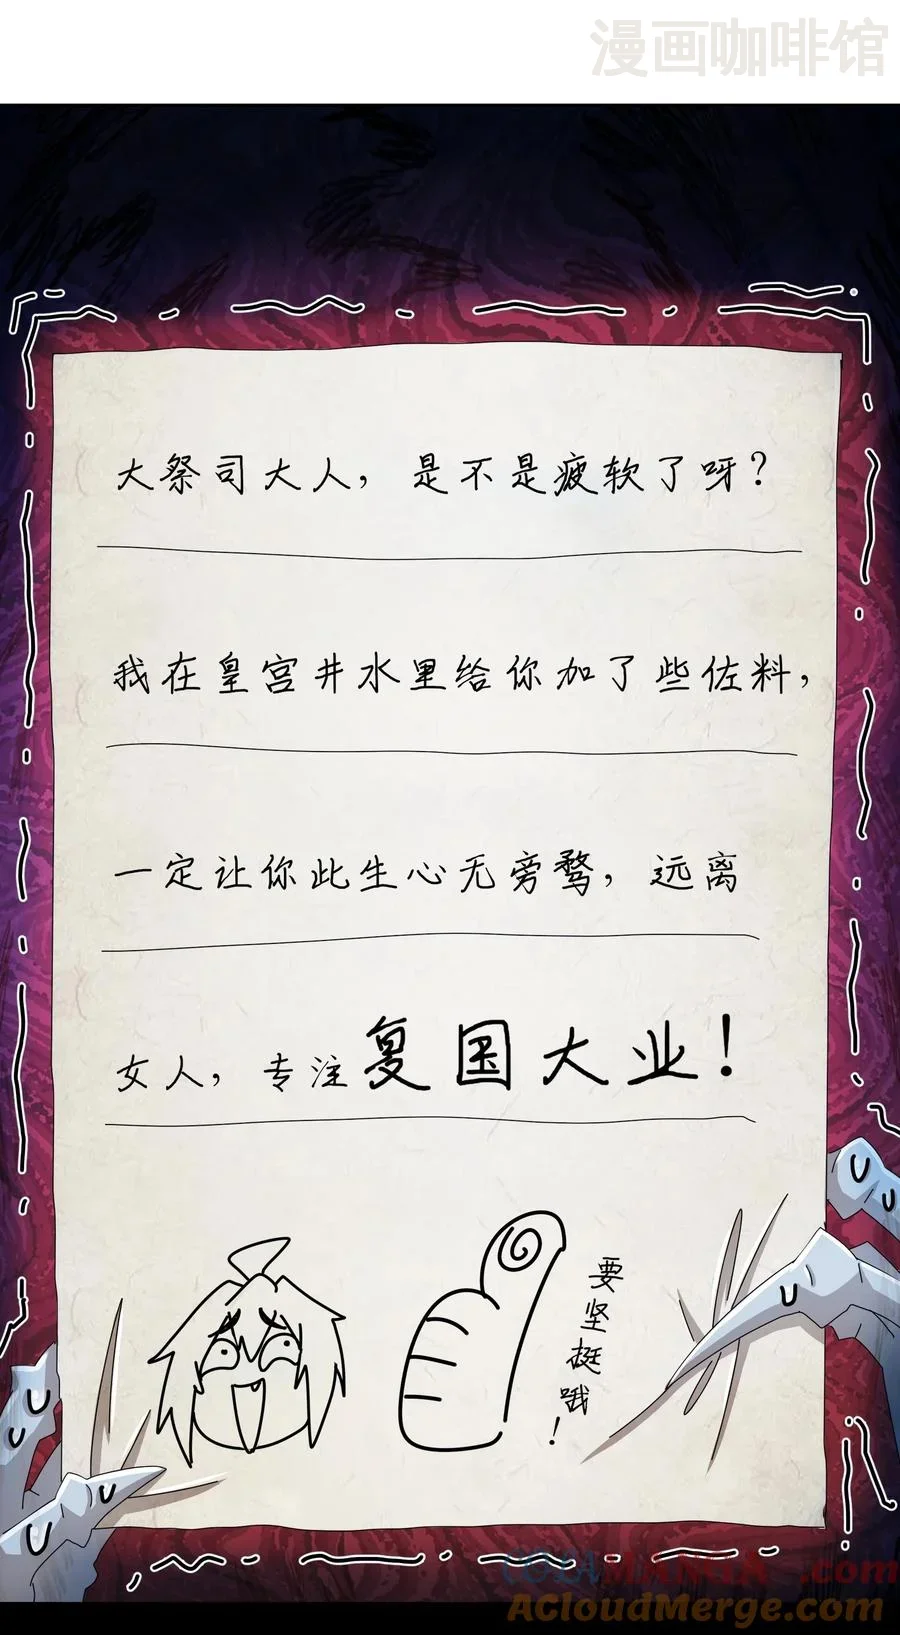 漫画咖啡馆
大祭司大人，是不是疲软了呀？
我在皇宫井水里给你加了些佐料，
一定让你此生心无旁鹜，远离
女人，专注复国大业！
要坚挺哦！
COLAMANGA.com
ACloudMerge.com